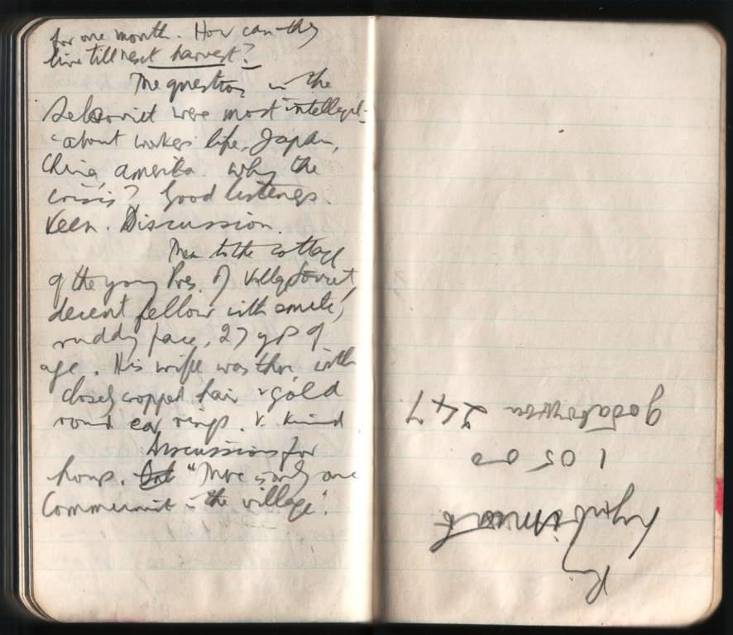 for one month. How can they
live till next harvest?
The questions in the
Selsoviet were most intelligent:
about workers life, Japan,
China, America. Why the
crisis? Good listeners.
Keen. Discussion.
Then to the cottage
of the young Pres. of Village Soviet,
decent fellow with smile,
ruddy face, 27 yrs of
age. His wife was there with
closely cropped hair & gold
round ear rings. V. kind
Discussions for
hours. "There is only one
Communist in the village".
1 05 00
247